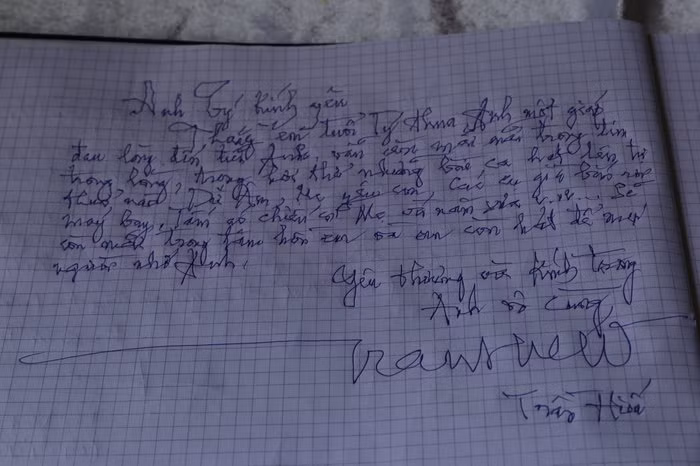 Anh Tý kính yêu
Thằng em tuổi Tý thua Anh một giáp
đau lòng đến tiễn Anh, vẫn còn mãi mãi trong tim
trong hồng, trong hơi thở những bài ca hát lên từ
thuở nào. Dư âm, Mẹ yêu con, Các cụ già bắn rơi
máy bay, Tấm áo chiến sĩ Mẹ vá năm xưa v.v... Sẽ
còn mãi trong tâm hồn em và em còn hát để mọi
người nhớ Anh.
Yêu thương và kính trọng
Anh vô cùng
Trần Hiếu